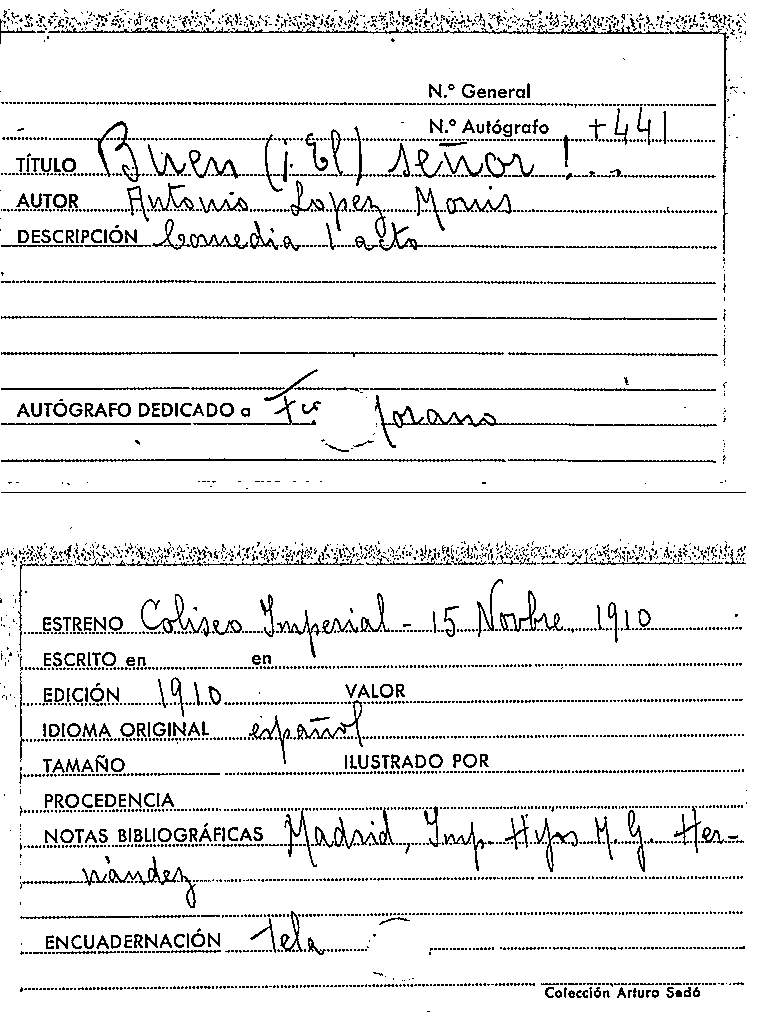 N.º General
N.º Autógrafo +441
TÍTULO Buen (¡El) señor!...
AUTOR Antonio Lopez Monis
DESCRIPCIÓN Comedia 1 acto
AUTÓGRAFO DEDICADO a Fco Morano
ESTRENO Coliseo Imperial - 15 Novbre 1910
ESCRITO en en
EDICIÓN 1910 VALOR
IDIOMA ORIGINAL español
TAMAÑO ILUSTRADO POR
PROCEDENCIA
NOTAS BIBLIOGRÁFICAS Madrid, Imp. Hijos M. G. Her-
nández
ENCUADERNACIÓN tela
Colección Arturo Sedó